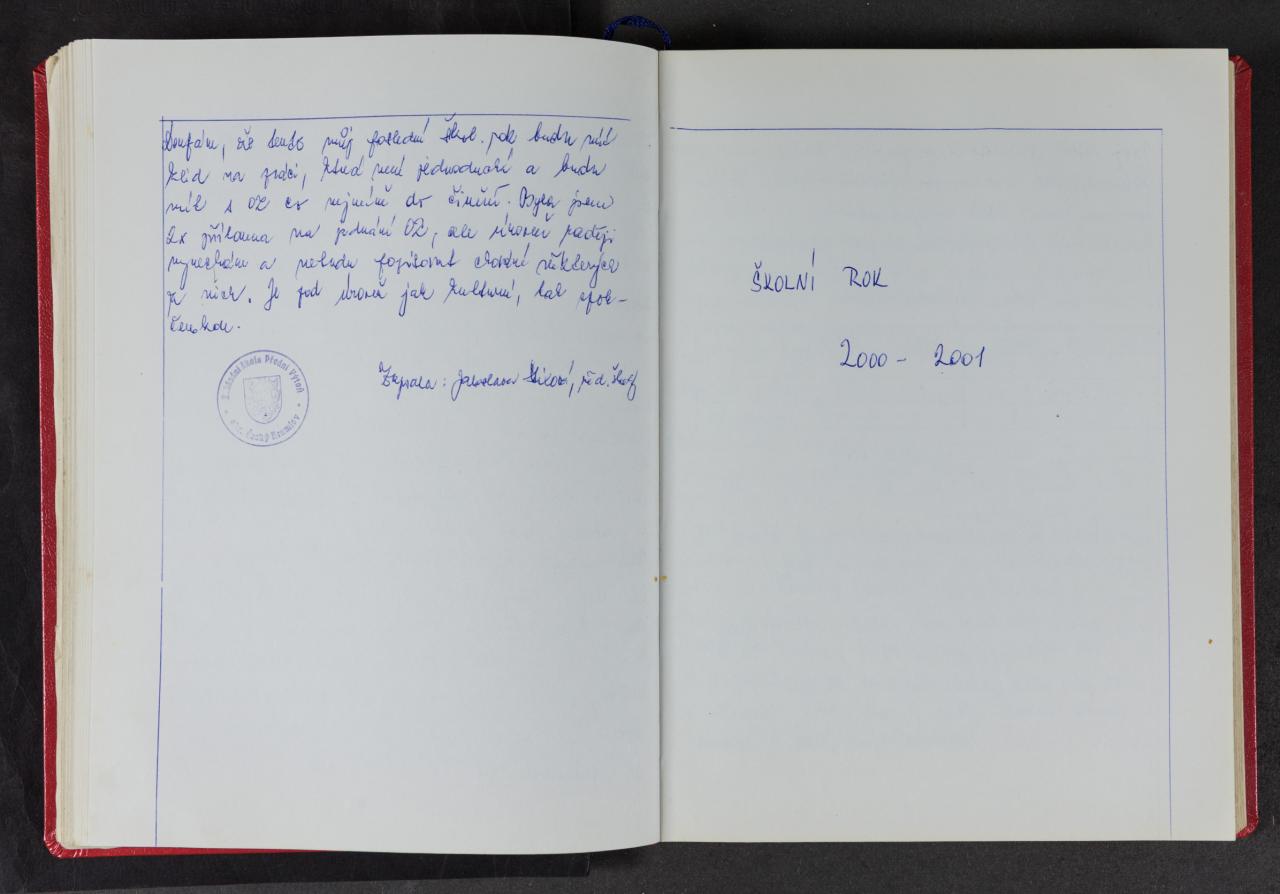 Doufám, že tento můj poslední škol. rok budu mít
klid na práci, která není jednoduchá a budu
mít s OZ co nejméně do činění. Byla jsem
2x přítomna na jednání OZ, ale úroveň raději
vynechám a nebudu popisovat chování některých
z nich. Je pod úroveň jak kulturní, tak spole-
čenskou.
Zapsala: Jaroslava, řed. školy
Základní škola Přední Výtoň
okr. Český Krumlov
ŠKOLNÍ ROK
2000 - 2001